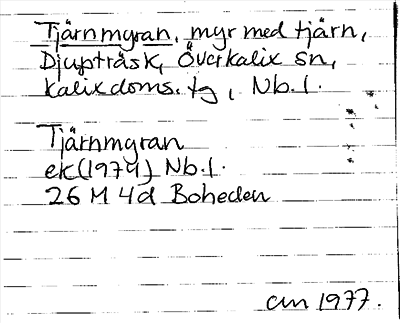 Tjärnmyran, myr med tjärn,
Djupträsk, Överkalix sn,
Kalix doms. tg, Nb. l.
Tjärnmyran
ek (1974) Nb. l.
26 M 4d Boheden
am 1977.